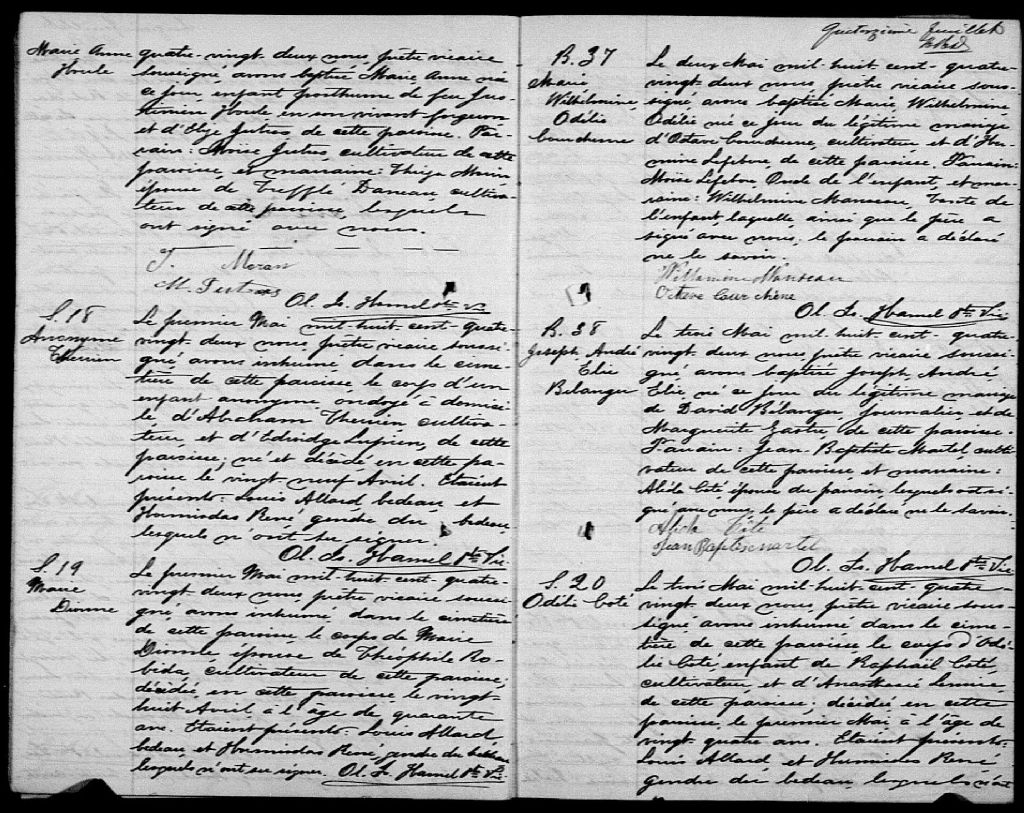 Marie Anne
Houle
quatre-vingt deux nous, prêtre vicaire
soussigné, avons baptisé Marie Anne née
ce jour, enfant posthume de feu
Houle en son vivant forgeron
et d'Elize Jutras de cette paroisse. Par-
rain: Moïse Jutras, cultivateur de cette
paroisse, et marraine:
épouse de Trefflé cultiva-
teur de cette paroisse, lesquels
ont signé avec nous.
T. Moran
M. Jutras
Ol. Is. Hamel Ptre Vic
S. 18
Anonyme
Therrien
Le premier Mai mil-huit-cent-quatre-
vingt-deux nous, prêtre vicaire soussi-
gné, avons inhumé dans le cime-
tière de cette paroisse le corps d'un
enfant anonyme ondoyé à domici-
le d'Abraham Therrien cultiva-
teur, et d'Edridge Lupien, de cette
paroisse; né et décédé en cette pa-
roisse le vingt neuf Avril. Etaient
présents: Louis Allard, bedeau et
Hormisdas René, gendre du bedeau,
lesquels n'ont su signer.
Ol. Is. Hamel Ptre Vic.
S. 19
Marie
Dionne
Le premier Mai mil-huit-cent-quatre-
vingt-deux nous, prêtre vicaire soussi-
gné, avons inhumé, dans le cimetière
de cette paroisse le corps de Marie
Dionne épouse de Théophile Ro-
bida, cultivateur de cette paroisse;
décédée, en cette paroisse le vingt
huit Avril, à l'âge de quarante
ans. Etaient présents: Louis Allard,
bedeau, et Hormisdas René, gendre du bedeau
lesquels n'ont su signer. Ol. Is. Hamel Ptre Vic.
Quatorzième feuillet
B. 37
Marie
Wilhelmine
Odélie
Courchesne
Le deux Mai mil-huit cent-quatre-
vingt-deux nous, prêtre vicaire sous-
signé, avons baptisé Marie, Wilhelmine
Odélie né ce jour du légitime mariage
d'Octave Courchesne, cultivateur, et d'Her-
mine Lefebvre de cette paroisse. Parrain:
Moïse Lefebvre, Oncle de l'enfant, et mar-
raine: Wilhelmine Manseau, tante de
l'enfant, laquelle, ainsi que le père a
signé avec nous; le parrain a déclaré
ne le savoir.
Willemine Manseau
Octave Courchène
Ol. Is. Hamel Ptre Vic
B. 38
Joseph André
Elie
Bélanger
Le trois Mai mil huit cent quatre-
vingt-deux nous, prêtre vicaire soussi-
gné avons baptisé Joseph, André,
Elie, né ce jour du légitime mariage
de David Bélanger, Journalier, et de
Marguerite de cette paroisse.
Parrain: Jean-Baptiste Martel culti-
vateur de cette paroisse et marraine:
Alède Coté, épouse du parrain, lesquels ont si-
gné avec nous, le père a déclaré ne le savoir.
Côté
Jean Baptiste martel
Ol. Is. Hamel Ptre Vic
S. 20
Odélie Coté
Le trois Mai mil huit-cent-quatre
vingt deux nous, prêtre vicaire sous-
signé avons inhumé dans le cime-
tière de cette paroisse, le corps d'Odé-
lie Coté, enfant de Raphaël Coté,
cultivateur, et d'Anasthasie
de cette paroisse; décédée, en cette
paroisse, le premier Mai à l'âge de
vingt-quatre ans. Etaient présents:
Louis Allard et Hormisdas René
gendre du bedeau, lesquels n'ont